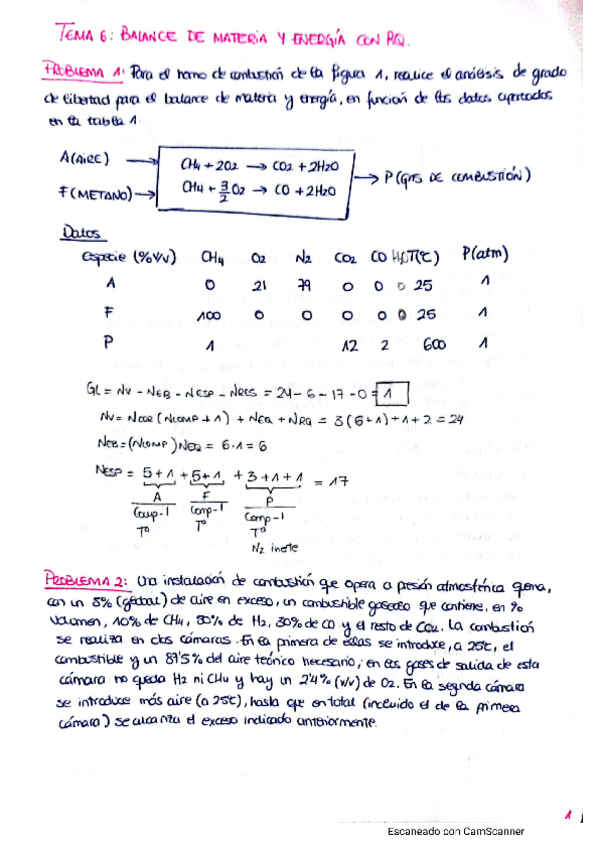 TEMA 6: BALANCE DE MATERIA Y ENERGÍA CON RQ.
PROBLEMA 1: Para el horno de combustión de la figura 1, realice el análisis de grado
de libertad para el balance de materia y energía, en función de los datos aportados
en la tabla 1.
A (AIRE)
CH4 + 2O2 → CO2 + 2H2O
P (GAS DE COMBUSTIÓN)
F (METANO)
CH4 + 3/2 O2 → CO + 2H2O
Datos
Especie (%v/v) CH4 O2 N2 CO2 CO H2O T(ºC) P(atm)
A 0 21 79 0 0 0 25 1
F 100 0 0 0 0 0 25 1
P 1 12 2 600 1
GL = NV - NEB - NESP - NRES = 24 - 6 - 17 - 0 = 1
NV = NCOR (NCOMP + 1) + NEQ + NRQ = 3(6+1) + 1 + 2 = 24
NEB = (NCOMP) NEQ = 6·1 = 6
NESP = 5+1 + 5+1 + 3+1+1 = 17
A F P
Comp-1 Comp-1 Comp-1
Tª Tª Tª
N2 inerte
PROBLEMA 2: Una instalación de combustión que opera a presión atmosférica quema,
con un 5% (global) de aire en exceso, un combustible gaseoso que contiene, en %
volumen, 10% de CH4, 30% de H2, 30% de CO y el resto de CO2. La combustión
se realiza en dos cámaras. En la primera de ellas se introduce, a 25ºC, el
combustible y un 87'5% del aire teórico necesario; en los gases de salida de esta
cámara no queda H2 ni CH4 y hay un 2'4% (v/v) de O2. En la segunda cámara
se introduce más aire (a 25ºC), hasta que en total (incluido el de la primera
cámara) se alcanza el exceso indicado anteriormente.
1
Escaneado con CamScanner